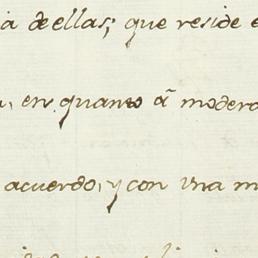 a de ellas; que reside e
, en quanto â modera
acuerdo, y con una m